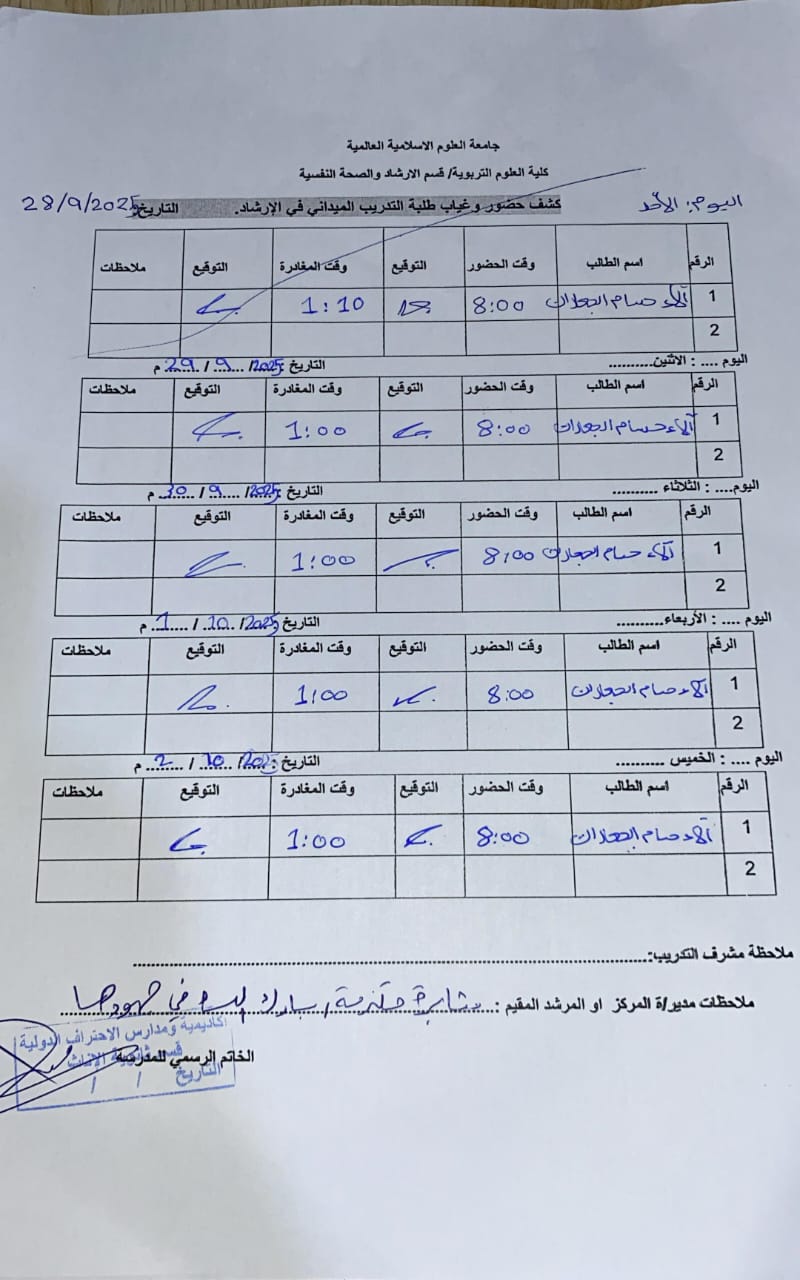 جامعة العلوم الاسلامية العالمية
كلية العلوم التربوية/ قسم الارشاد والصحة النفسية
اليوم: الأحد كشف حضور وغياب طلبة التدريب الميداني في الإرشاد. التاريخ: 28/9/2025
الرقم اسم الطالب وقت الحضور التوقيع وقت المغادرة التوقيع ملاحظات
1 آلاء حسام 8:00 1:10
2
اليوم .... : الاثنين........... التاريخ : 29 / 9 / 2025 م
الرقم اسم الطالب وقت الحضور التوقيع وقت المغادرة التوقيع ملاحظات
1 آلاء حسام 8:00 1:00
2
اليوم.... : الثلاثاء .......... التاريخ : 30 / 9 / 2025 م
الرقم اسم الطالب وقت الحضور التوقيع وقت المغادرة التوقيع ملاحظات
1 آلاء حسام 8:00 1:00
2
اليوم .... : الأربعاء.......... التاريخ : 1 / 10 / 2025 م
الرقم اسم الطالب وقت الحضور التوقيع وقت المغادرة التوقيع ملاحظات
1 آلاء حسام 8:00 1:00
2
اليوم .... : الخميس .......... التاريخ : 2 / 10 / 2025 م
الرقم اسم الطالب وقت الحضور التوقيع وقت المغادرة التوقيع ملاحظات
1 آلاء حسام 8:00 1:00
2
ملاحظة مشرف التدريب:................
ملاحظات مدير/ة المركز او المرشد المقيم : مثابرة ملتزمة، بارك الله في جهودها
أكاديمية ومدارس الاحتراف الدولية
الخاتم الرسمي للمدرسة
قسم ثانوية الإناث
التاريخ / /